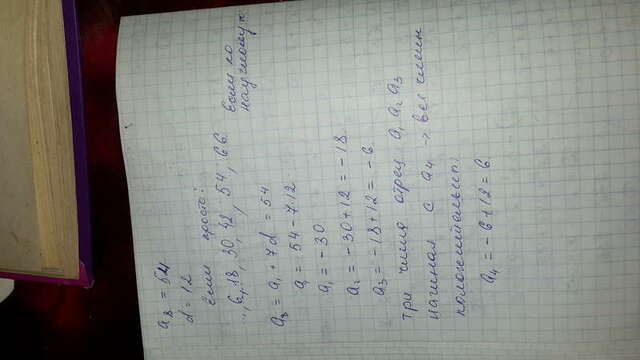 a₈ = 54
d = 12
Если просто:
.., 6, 18, 30, 42, 54, 66. Если по
научному:
a₈ = a₁ + 7d = 54
a₁ = 54 - 7·12
a₁ = -30
a₂ = -30+12 = -18
a₃ = -18+12 = -6
три числа отриц. a₁ a₂ a₃
начиная с a₄ → все числа
положительны:
a₄ = -6+12 = 6